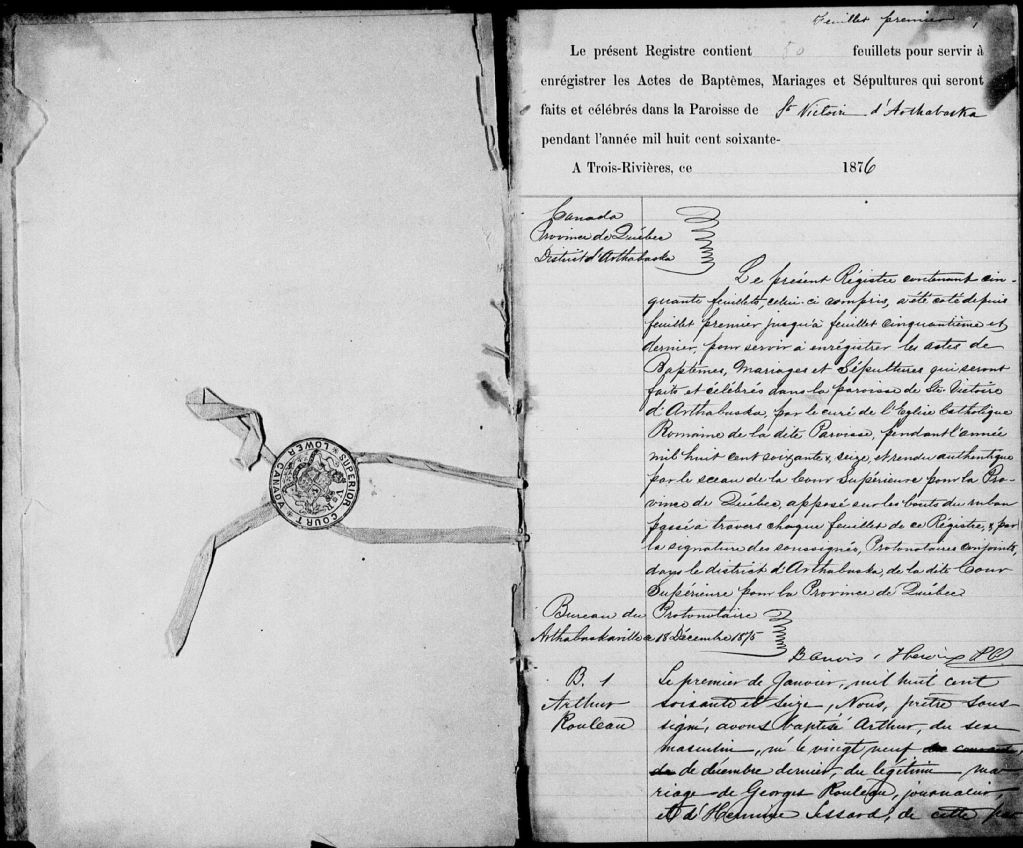 SUPERIOR COURT
LOWER CANADA
VR
Feuillet premier 1
Le présent Registre contient 50 feuillets pour servir à
enrégistrer les Actes de Baptêmes, Mariages et Sépultures qui seront
faits et célébrés dans la Paroisse de St Victoire d'Arthabaska
pendant l'année mil huit cent soixante-
A Trois-Rivières, ce 1876
Canada
Province de Québec
District d'Arthabaska
Le présent Régistre contenant cin-
quante feuillets, celui-ci compris, a été coté depuis
feuillet premier jusqu'à feuillet cinquantième et
dernier, pour servir à enrégistrer les actes de
Baptêmes, Mariages et Sépultures qui seront
faits et célébrés dans la paroisse de Ste Victoire
d'Arthabaska, par le curé de l'Eglise Catholique
Romaine de la dite Paroisse, pendant l'année
mil huit cent soixante & seize, et rendu authentique
par le sceau de la Cour Supérieure pour la Pro-
vince de Québec, apposé sur les bouts du ruban
passé à travers chaque feuillet de ce Régistre, & par
la signature des soussignés, Protonotaires conjoints,
dans le district d'Arthabaska, de la dite Cour
Supérieure pour la Province de Québec
Bureau du Protonotaire
Arthabaskaville 18 Décembre 1875
P.C.S.
B. 1
Arthur
Rouleau
Le premier de Janvier, mil huit cent
soixante et seize, Nous, prêtre sous-
signé, avons baptisé Arthur, du sexe
masculin, né le vingt neuf du courant,
de de décembre dernier, du légitime ma-
riage de Georges Rouleau, journalier,
et d'Hermine Lessard, de cette par